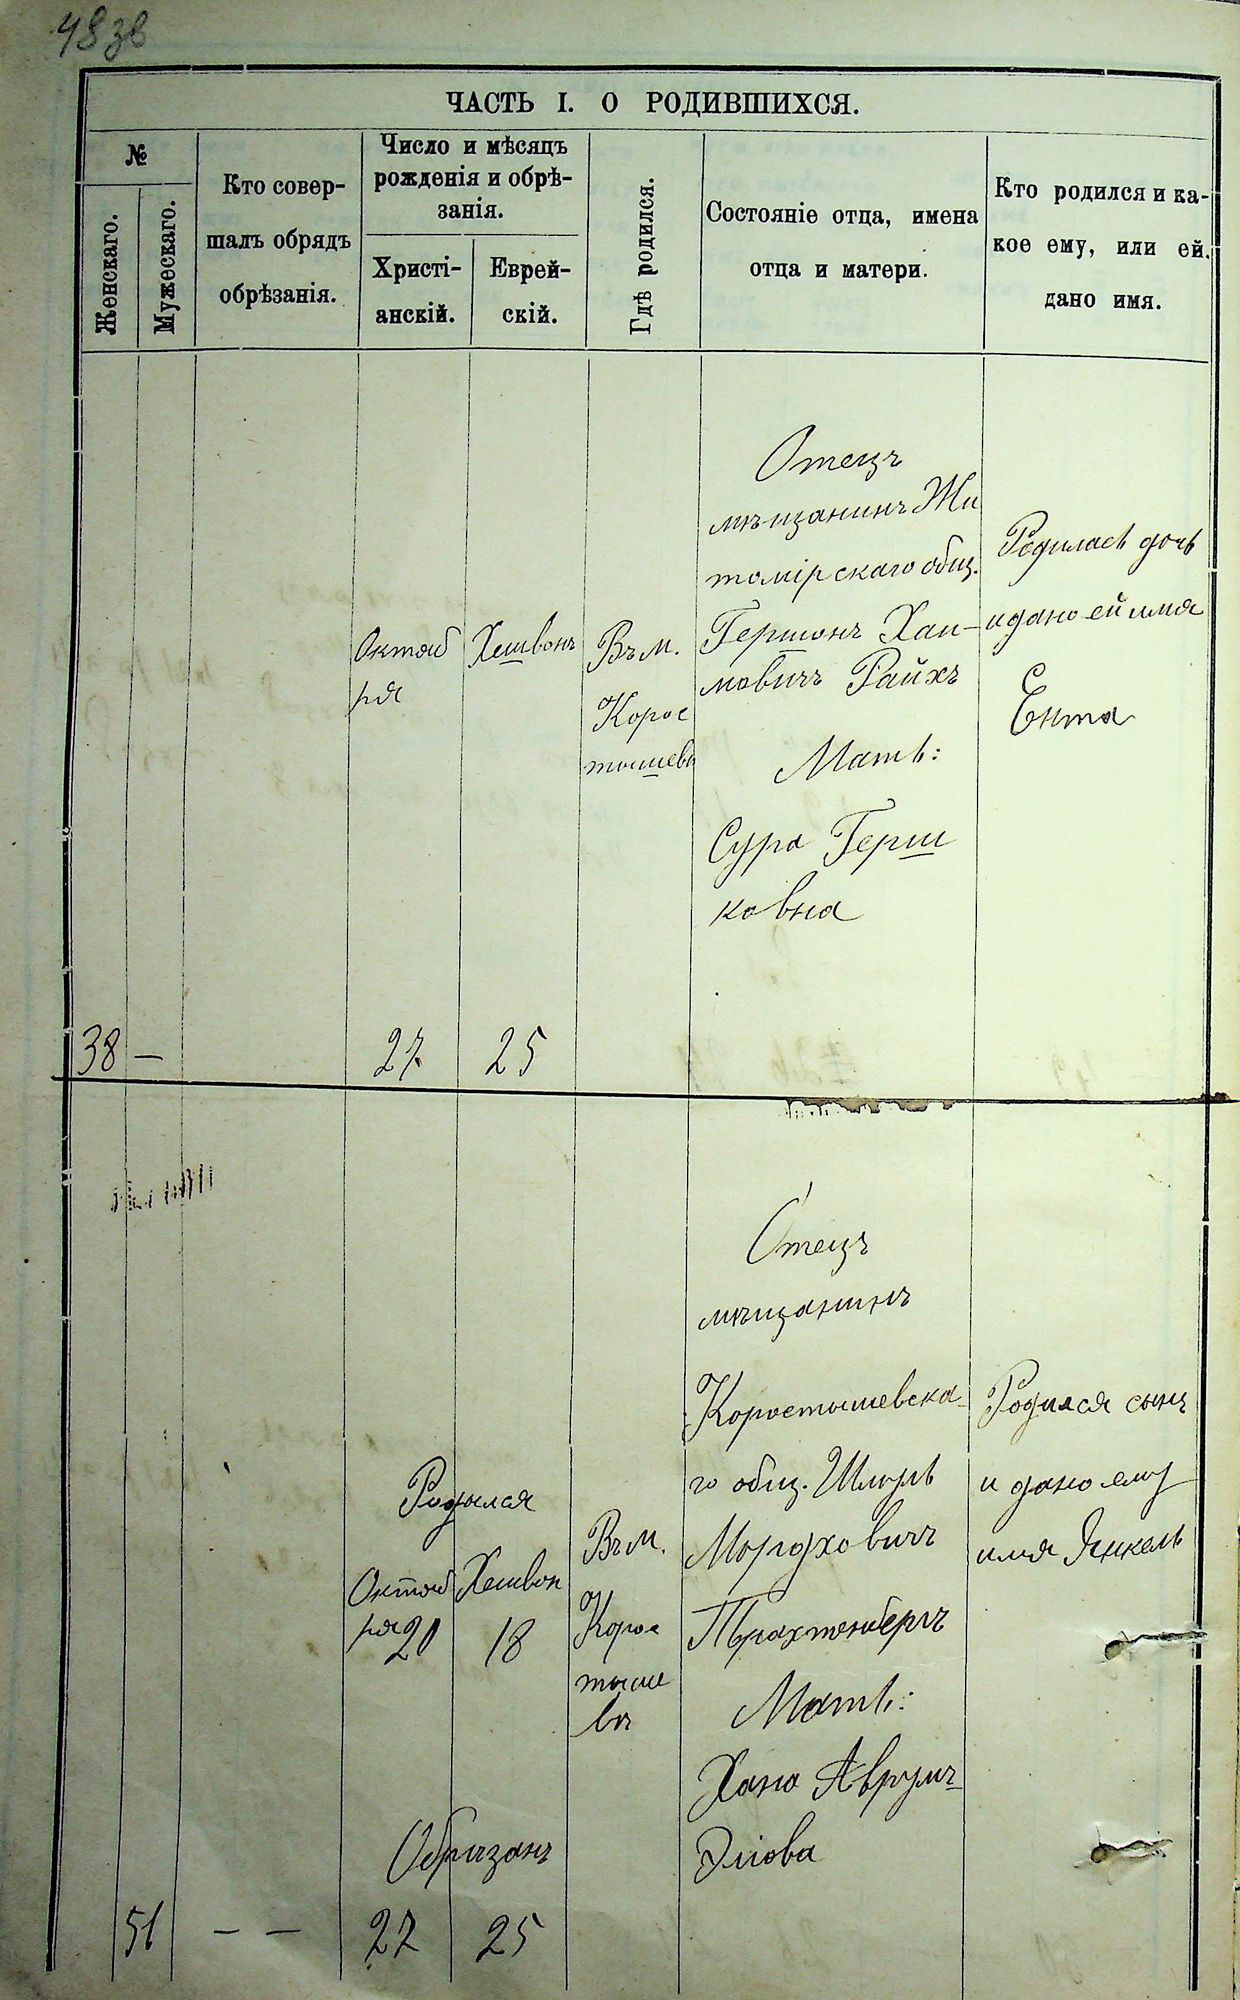 48 зв
ЧАСТЬ I. О РОДИВШИХСЯ.
№
Женскаго.
Мужескаго.
Кто совер-
шалъ обрядъ
обрѣзанія.
Число и мѣсяцъ
рожденія и обрѣ-
занія.
Христі-
анскій.
Еврей-
скій.
Гдѣ родился.
Состояніе отца, имена
отца и матери.
Кто родился и ка-
кое ему, или ей,
дано имя.
38
—
Октяб
ря
27
Хешвонъ
25
Въ м.
Корос
тышевѣ
Отецъ
мѣщанинъ Жи
томірскаго общ.
Гершонъ Хаи-
мовичъ Райхъ
Мать:
Сура Герш
ковна
Родилась дочь
и дано ей имя
Ента
51
— —
Родился
Октяб
ря 20
Хешвон
18
Обрѣзанъ
27
25
Въ м.
Корос
тыше
вѣ
Отецъ
мѣщанинъ
Коростышевска-
го общ. Шмуль
Мордховичъ
Трахтенбергъ
Мать:
Хана Аврумъ-
Эліова
Родился сынъ
и дано ему
имя Янкель